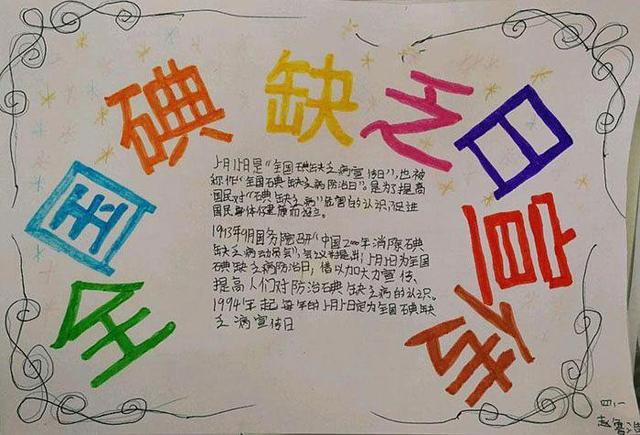 全国碘缺乏日宣传
5月15日是“全国碘缺乏病宣传日”,也被
称作“全国碘缺乏病防治日”,是为了提高
国民对“碘缺乏病”危害的认识,促进
国民身体健康而设立。
1993年9月国务院召开“中国2000年消除碘
缺乏病动员会”,会议提出,5月5日为全国
碘缺乏病防治日,借以加大力宣传、
提高人们对防治碘缺乏病的认识。
1994年起每年的5月5日定为全国碘缺
乏病宣传日
四、一
赵